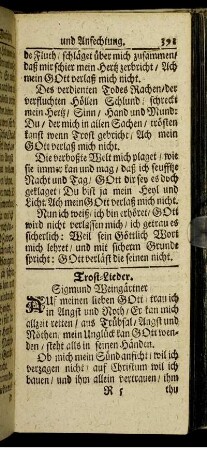 und Anfechtung. 391
de Fluth/ schläget über mich zusammen/
daß mir schier mein Hertz zerbricht/ Ach
mein GOtt verlaß mich nicht.
Des verdienten Todes Rachen/ der
verfluchten Höllen Schlund/ schreckt
mein Hertz/ Sinn/ Hand und Mund:
Du/ der mich in allen Sachen/ trösten
kanst wenn Trost gebricht/ Ach mein
GOtt verlaß mich nicht.
Die verboßte Welt mich plaget/ wie
sie immer kan und mag/ daß ich seufftze
Nacht und Tag/ GOtt dir sey es doch
geklaget/ Du bist ja mein Heyl und
Licht Ach mein GOtt verlaß mich nicht.
Nun ich weiß/ ich bin erhöret/ GOtt
wird nicht verlassen mich/ ich getrau es
sicherlich: Weil sein Göttlich Wort
mich lehret/ und mit sicherm Grunde
spricht: GOtt verläst die seinen nicht.
Trost-Lieder.
Sigmund Weingärtner
AUf meinen lieben GOtt/ trau ich
in Angst und Noth/ Er kan mich
allzeit retten/ aus Trübsal/ Angst und
Nöthen/ mein Unglück kan GOtt wen-
den/ steht alls in seinen Händen.
Ob mich mein Sünd anficht/ wil ich
verzagen nicht/ auf Christum wil ich
bauen/ und ihm allein vertrauen/ ihm
R 5 thu